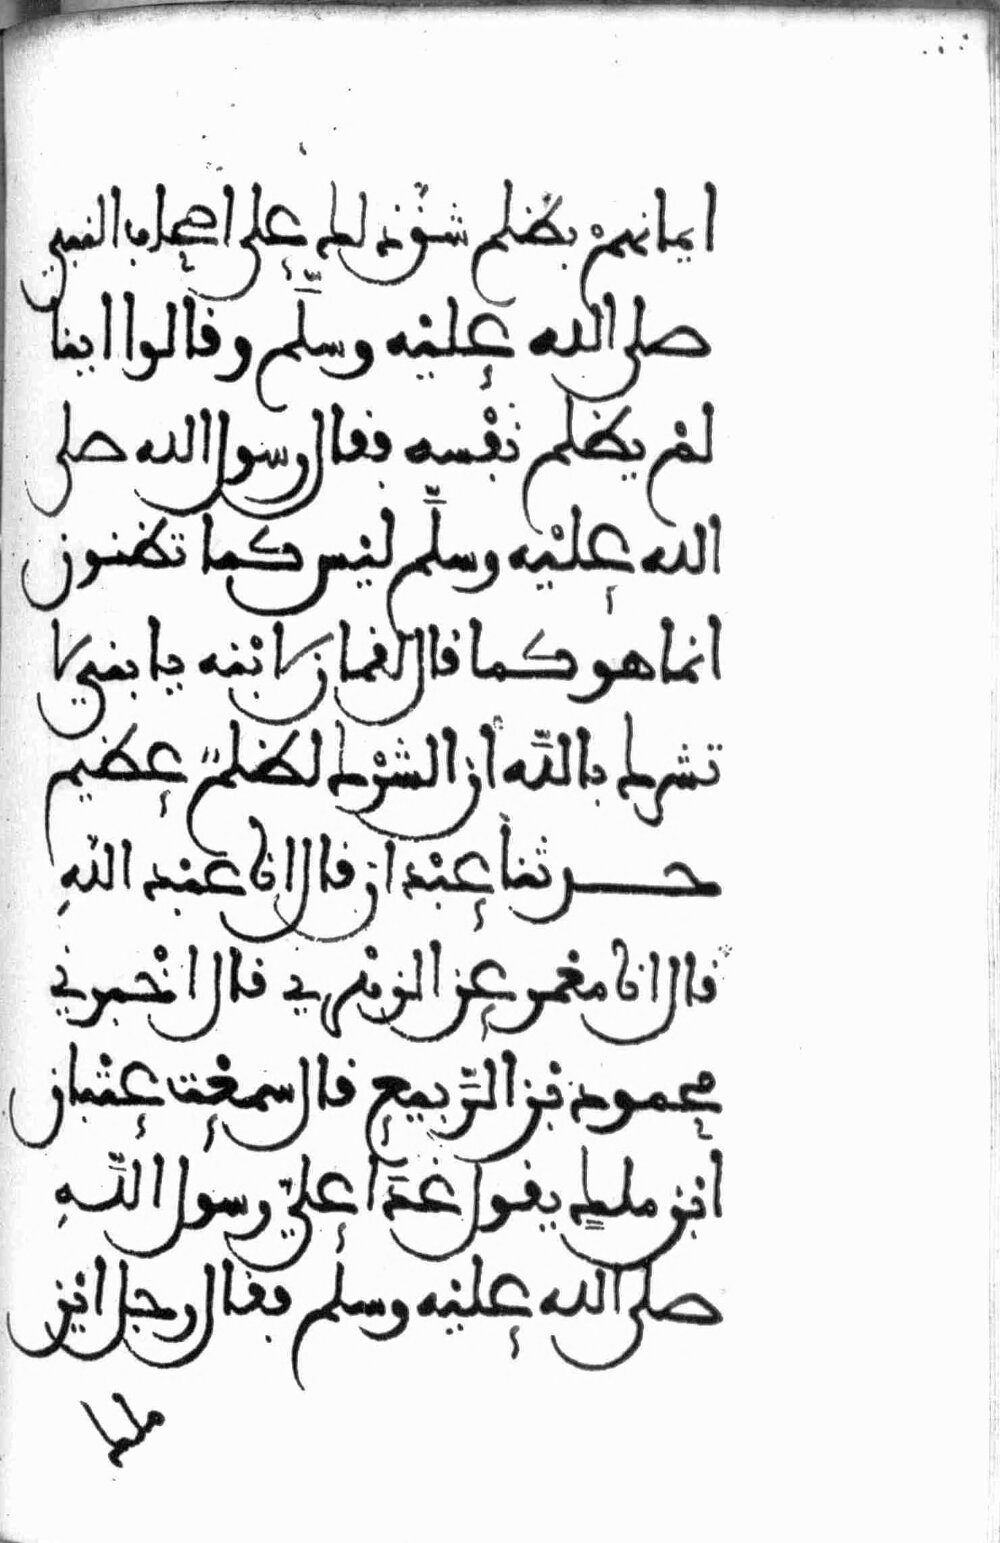 ايمانهم بظلم شق ذلك على اصحاب النبي
صلى الله عليه وسلم وقالوا اينا
لم يظلم نفسه فقال رسول الله صلى
الله عليه وسلم ليس كما تظنون
انما هو كما قال لقمان لابنه يا بني لا
تشرك بالله ان الشرك لظلم عظيم
حدثنا عبدان قال انا عبد الله
قال انا معمر عن الزهري قال اخبرني
محمود بن الربيع قال سمعت عتبان
ابن ملك يقول غدا علي رسول الله
صلى الله عليه وسلم فقال رجل اين
ملك